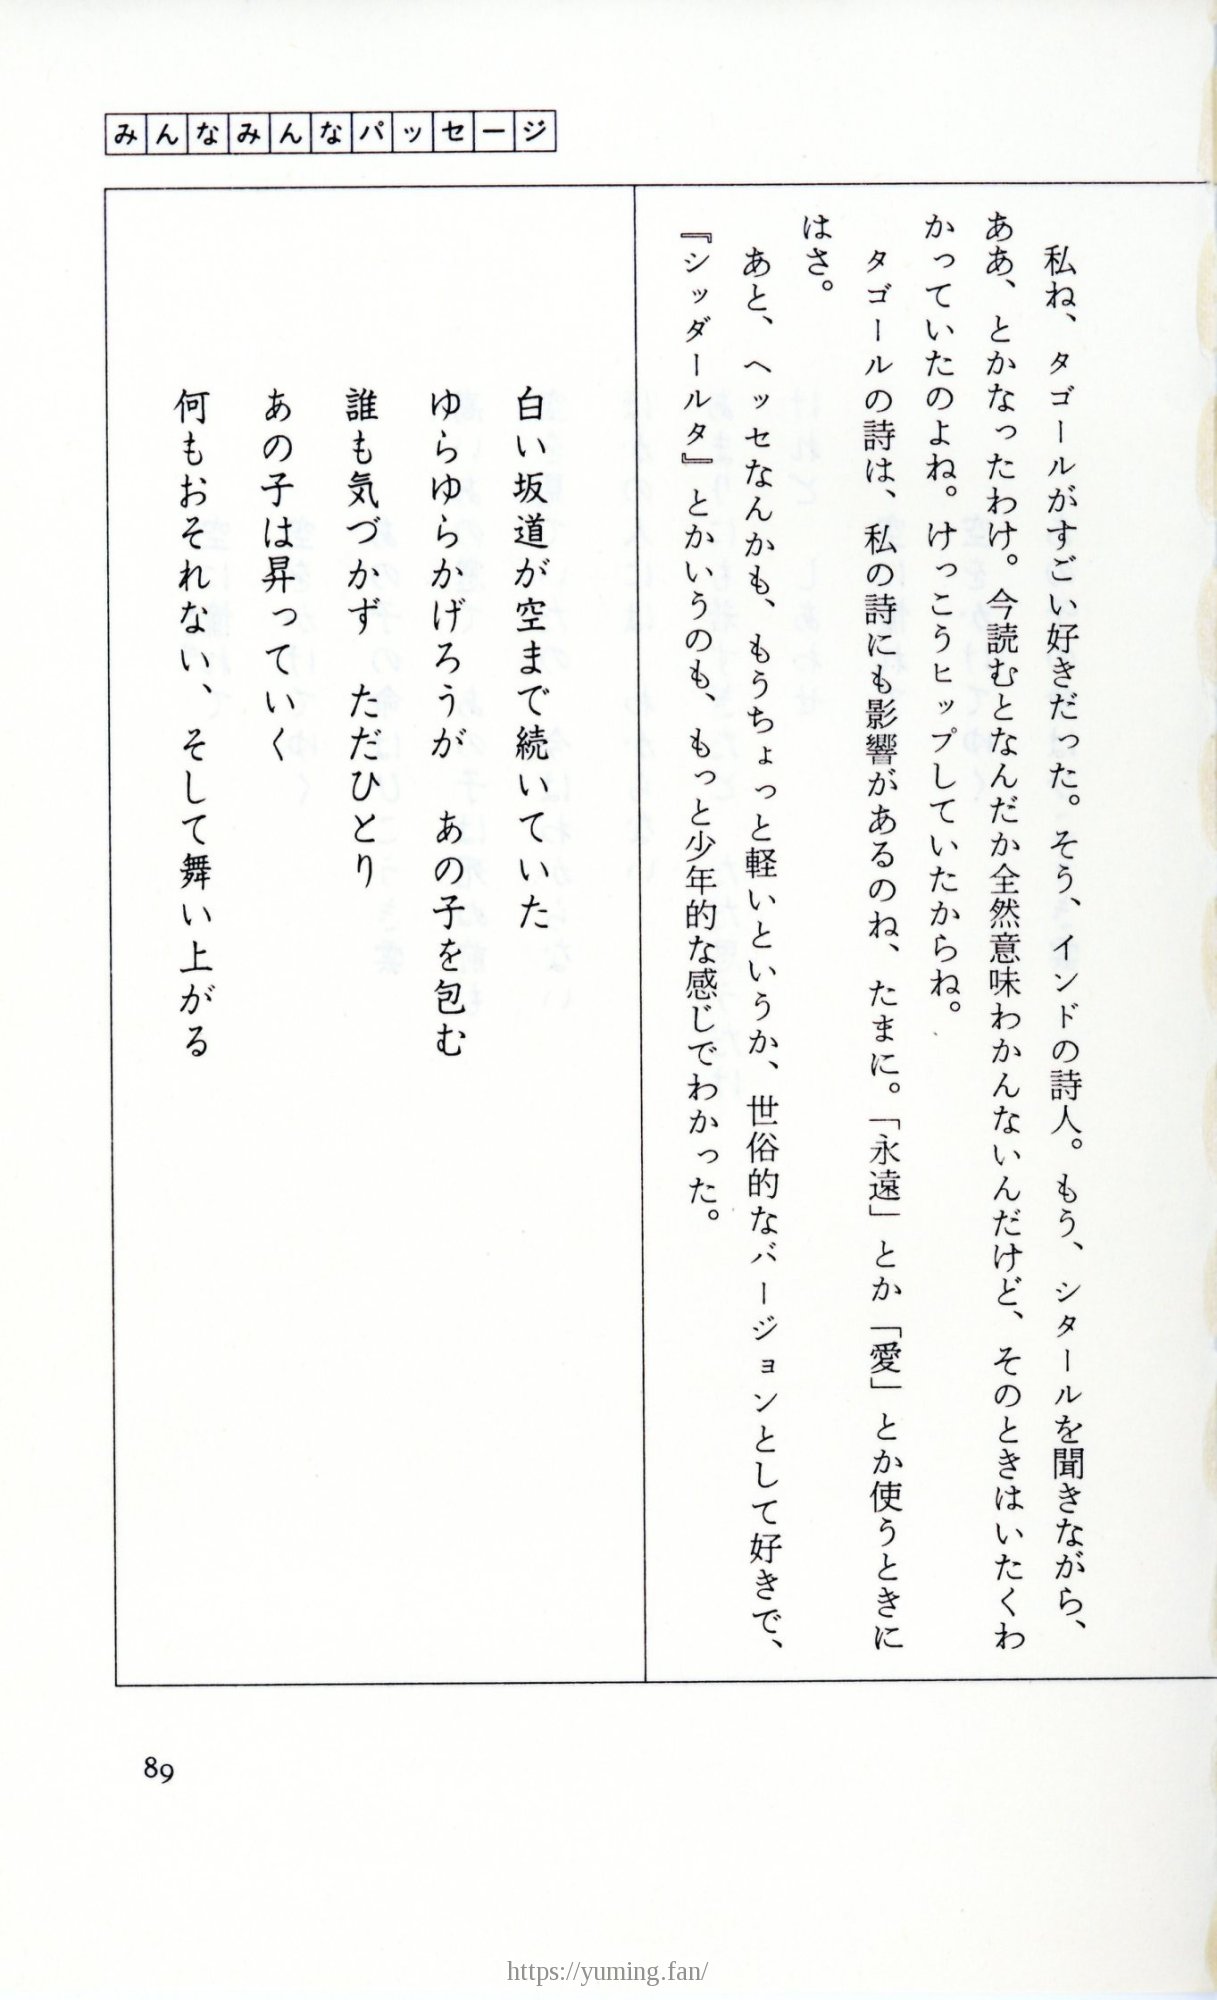 みんなみんなパッセージ
私ね、タゴールがすごい好きだった。そう、インドの詩人。もう、シタールを聞きながら、
ああ、とかなったわけ。今読むとなんだか全然意味わかんないんだけど、そのときはいたくわ
かっていたのよね。けっこうヒップしていたからね。
タゴールの詩は、私の詩にも影響があるのね、たまに。「永遠」とか「愛」とか使うときに
はさ。
あと、ヘッセなんかも、もうちょっと軽いというか、世俗的なバージョンとして好きで、
『シッダールタ』とかいうのも、もっと少年的な感じでわかった。
白い坂道が空まで続いていた
ゆらゆらかげろうが　あの子を包む
誰も気づかず　ただひとり
あの子は昇っていく
何もおそれない、そして舞い上がる
89
https://yuming.fan/